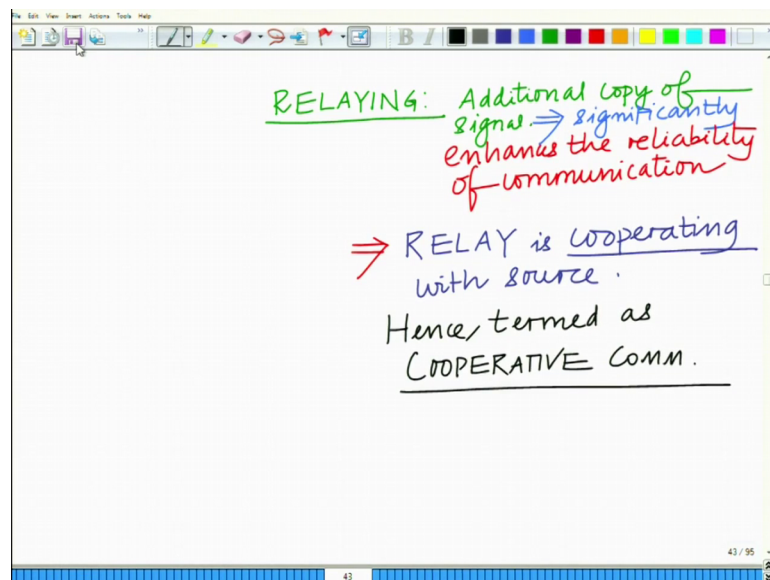 File Edit View Insert Actions Tools Help
B I
RELAYING: Additional copy of
signal. ⇒ significantly
enhances the reliability
of communication
⇒ RELAY is cooperating
with source.
Hence, termed as
COOPERATIVE COMM.
43 / 95
43